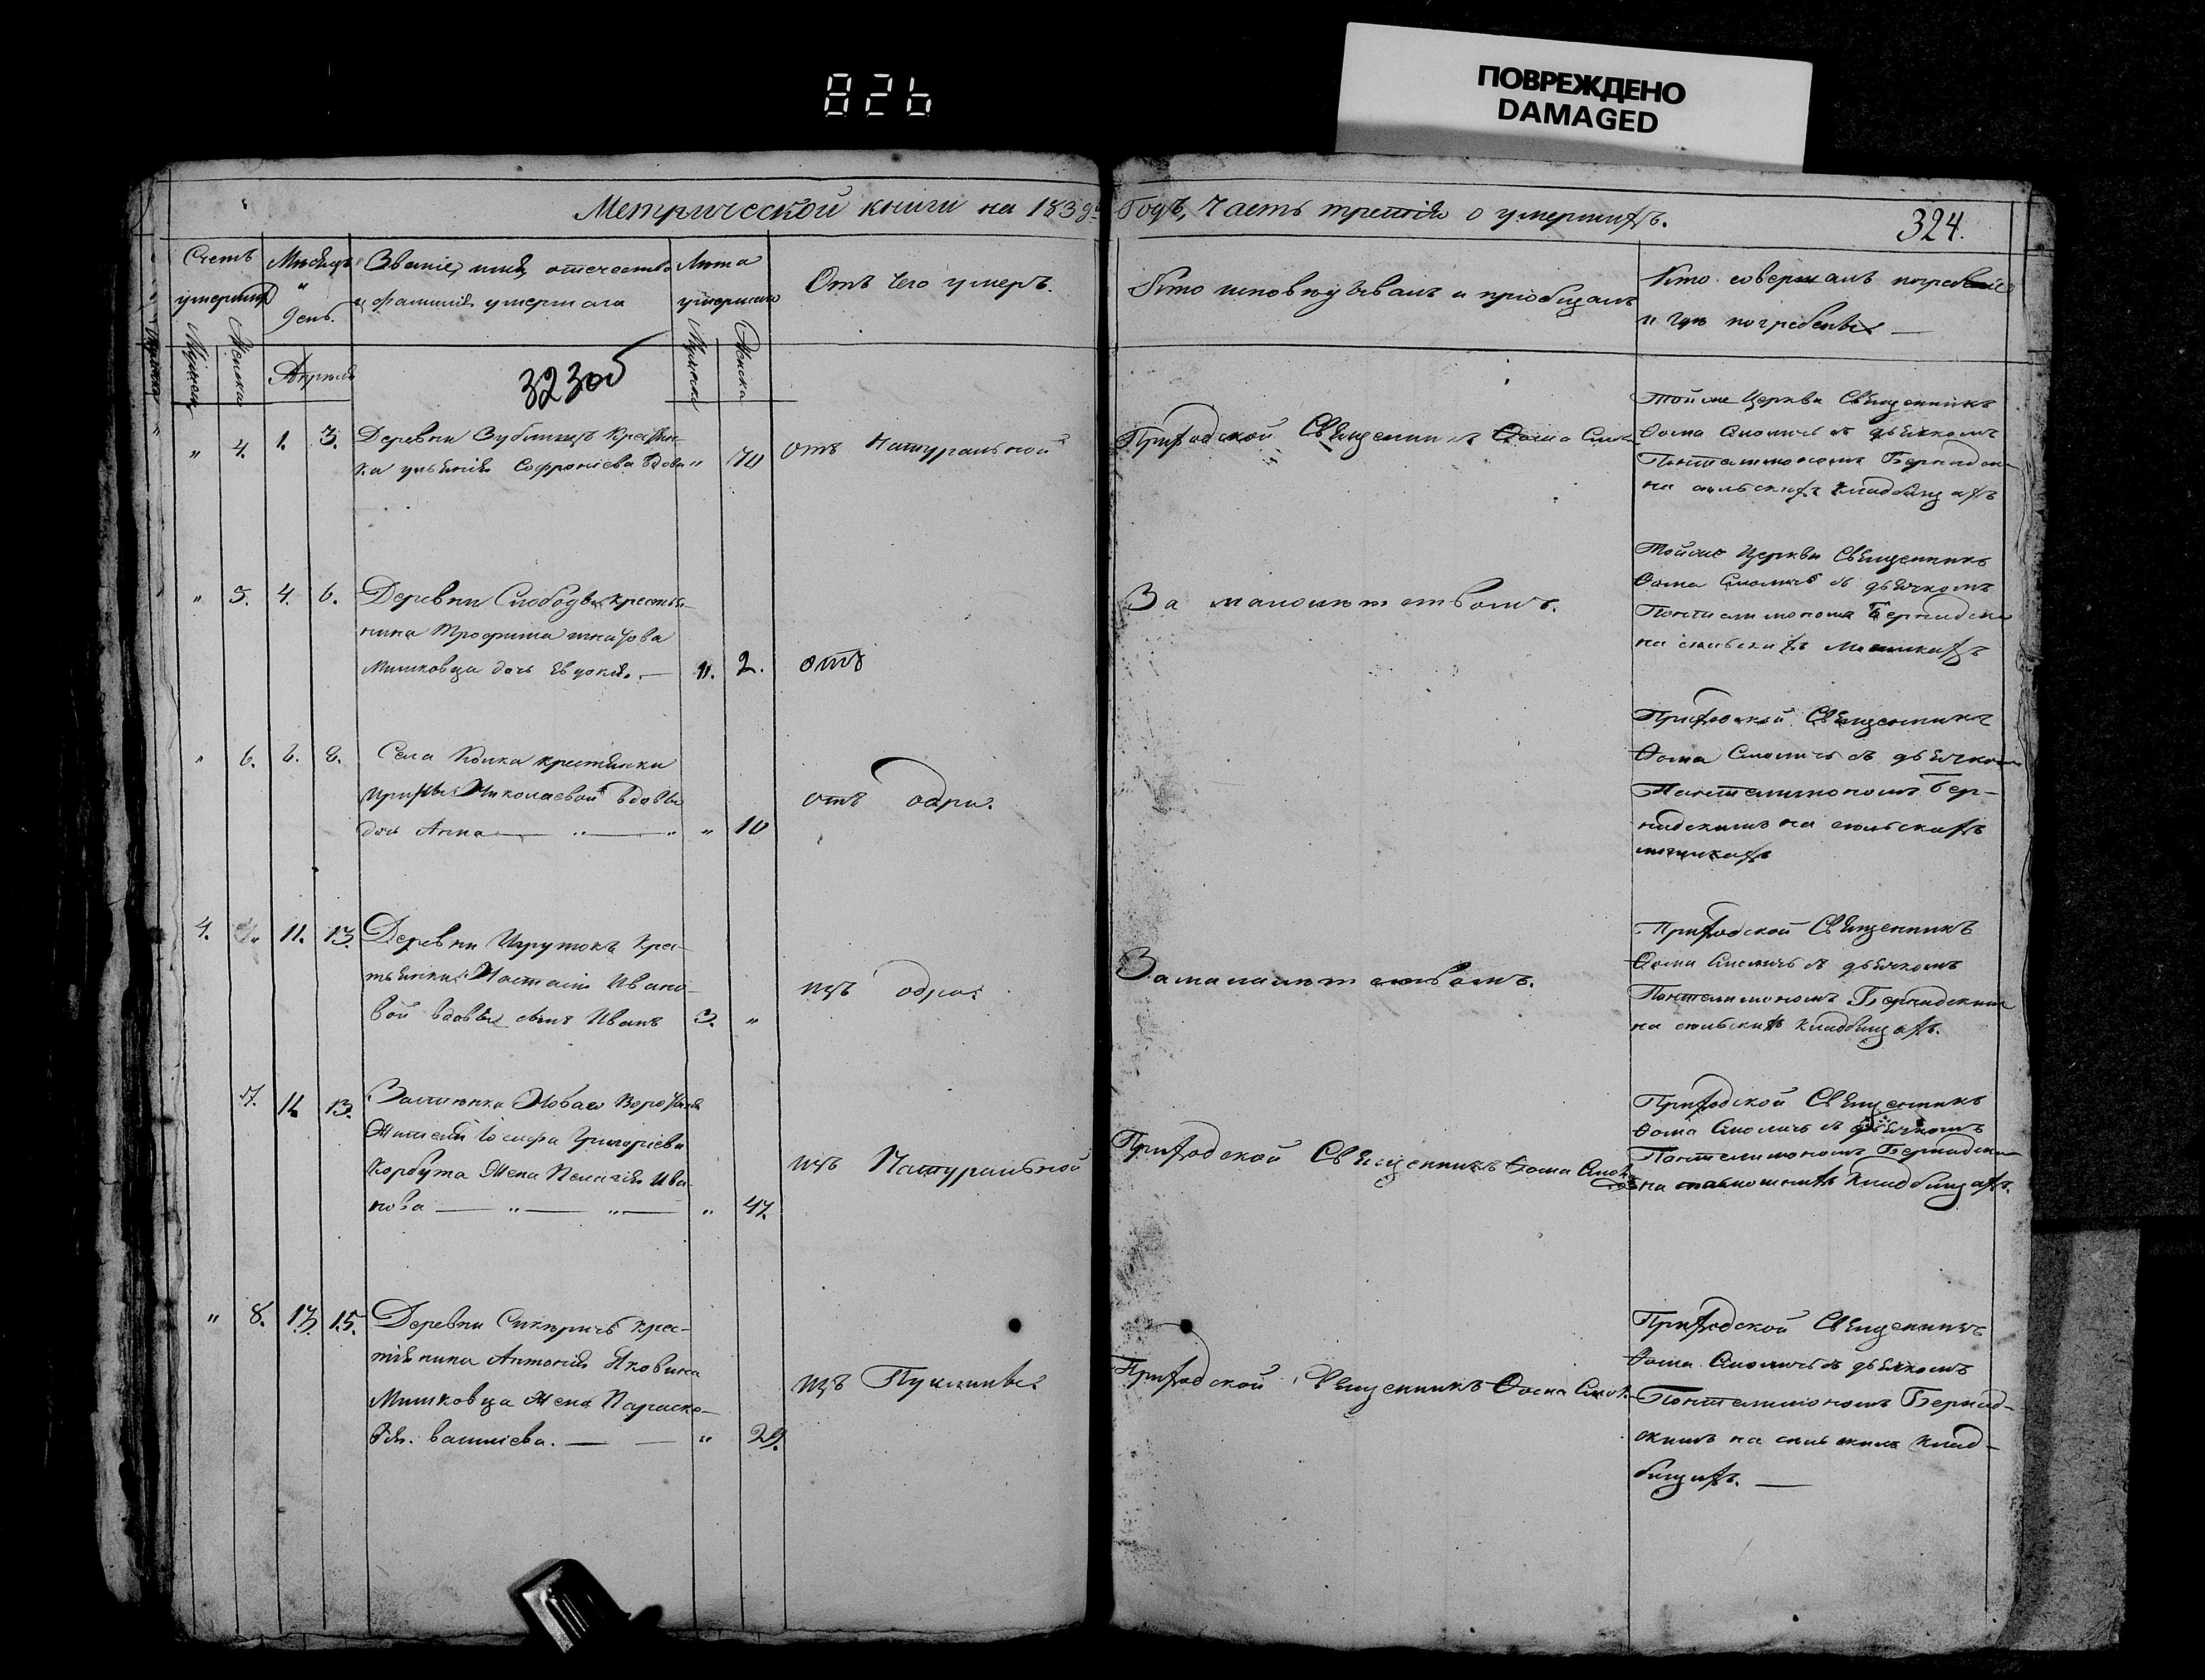 826
ПОВРЕЖДЕНО
DAMAGED
Метрической книги на 1839й Годъ, Часть третія о умершихъ.
324.
Счетъ умершихъ
Мужеска
Женска
Мѣсяцъ и день.
Апрѣль
Званіе, имя, отечество
и фамилія умершаго
323об
Лѣта умершаго
Мужеска
Женска
Отъ чего умеръ.
Кто исповѣдывалъ и пріобщалъ
Кто совершалъ погребеніе
и гдѣ погребены —
" 4. 1. 3.
Деревни Зублищъ Крестьян-
ка Ульянія Софроніева вдова " 70
отъ Натуральной
Приходской Священникъ Фома Смол-
Тойже Церкви Священникъ
Фома Смоличъ съ дьячкомъ
Пантелимономъ Бернадск-
на сельскихъ кладбищахъ
" 5. 4. 6.
Деревни Слободы крестья-
нина Трофима
Мишковца дочь Евдокія. — ". 2.
отъ
За малолѣтствомъ.
Тойже Церкви Священникъ
Фома Смоличъ съ дьячкомъ
Пантелимономъ Бернадск
на сельскихъ могилкахъ
" 6. 6. 8.
Села крестьянки
Николаевой вдовы
дочь Анна — " — " " 10
отъ одри.
Приходской Священникъ
Фома Смоличъ съ дьячкомъ
Пантелимономъ Бер-
надскимъ на сельскихъ
могилкахъ
4. " 11. 13.
Деревни Крес-
тьянки Настасіи Ивано-
вой вдовы сынъ Иванъ 3. "
изъ одра.
За малолѣтствомъ.
Приходской Священникъ
Фома Смоличъ съ дьячкомъ
Пантелимономъ Бернадским
на сельскихъ кладбищахъ.
7. 11. 13.
Застѣнка Новаго
Жителя Іосифа Григоріева
Корбута Жена Пелагія Ива-
нова — " — " — " 47.
изъ Натуральной
Приходской Священникъ Фома Смол-
Приходской Священникъ
Фома Смоличъ съ дьячкомъ
Пантелимономъ Бернадски
на кладбищахъ.
" 8. 13. 15.
Деревни крес-
тьянина Антонія Яковина
Мишковца Жена Параске-
вія. Василіева. — — " 29.
изъ
Приходской Священникъ Фома Смол-
Приходской Священникъ
Фома Смоличъ съ дьячкомъ
Пантелимономъ Бернад-
скимъ на сельскихъ клад-
бищахъ. —